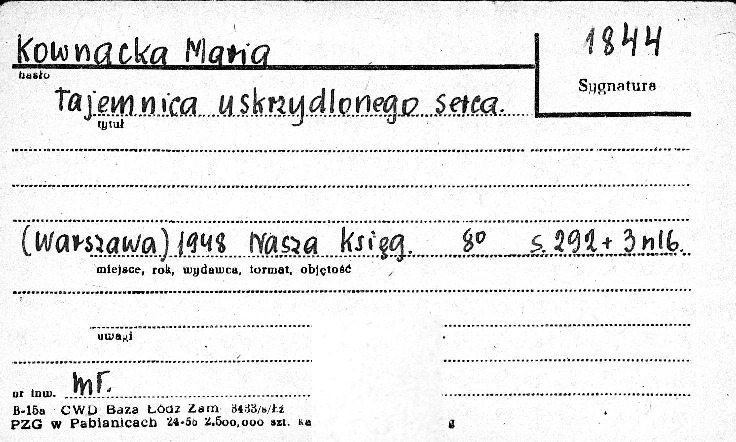 Kownacka Maria
1844
hasło
Sygnatura
Tajemnica uskrzydlonego serca.
tytuł
(Warszawa) 1948 Nasza Księg. 8⁰ s. 292 + 3 nlb.
miejsce, rok, wydawca, format, objętość
uwagi
nr inw.
B-15a CWD Baza Łódź Zam 3433/s/Łż
PZG w Pabianicach 24-50 2.500,000 szt.